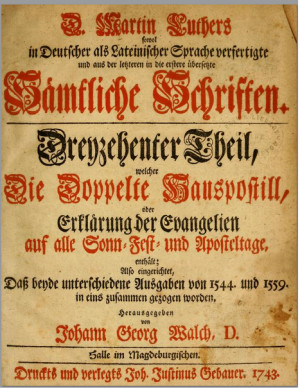 D. Martin Luthers
sowol
in Deutscher als Lateinischer Sprache verfertigte
und aus der letzteren in die erstere übersetzte
Sämtliche Schriften.
Dreyzehenter Theil,
welcher
Die Doppelte Hauspostill,
oder
Erklärung der Evangelien
auf alle Sonn- Fest- und Aposteltage,
enthält;
Also eingerichtet,
Daß beyde unterschiedene Ausgaben von 1544. und 1559.
in eins zusammen gezogen worden.
Herausgegeben
von
Johann Georg Walch, D.
Halle im Magdeburgischen.
Druckts und verlegts Joh. Justinus Gebauer. 1743.